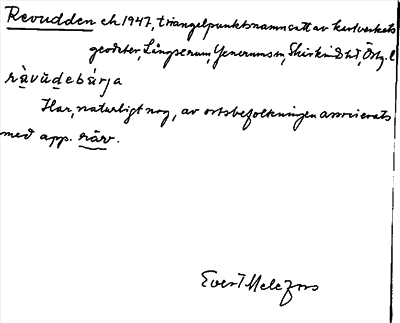 Revudden ek. 1947, triangelpunktsnamn satt av kartverkets
geodeter, Långserum, Yxnerums sn, Skärkinds hd, Östg. l
ràvùdebárja
Har, naturligt nog, av ortsbefolkningen associerats
med app. räv.
Evert Melefors